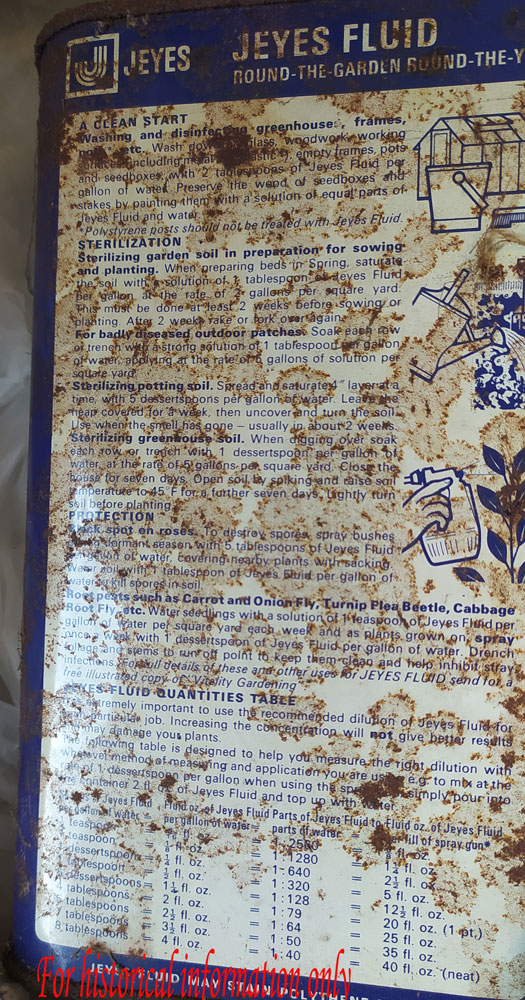 JEYES
JEYES FLUID
ROUND-THE-GARDEN ROUND-THE-Y
A CLEAN START
Washing and disinfecting greenhouses, frames,
etc. Wash down glass, woodwork, working
including metal empty frames, pots
and seedboxes, with 2 tablespoons of Jeyes Fluid per
gallon of water. Preserve the wood of seedboxes and
stakes by painting them with a solution of equal parts of
Jeyes Fluid and water.
Polystyrene posts should not be treated with Jeyes Fluid.
STERILIZATION
Sterilizing garden soil in preparation for sowing
and planting. When preparing beds in Spring, saturate
the soil with a solution of 1 tablespoon of Jeyes Fluid
per gallon at the rate of gallons per square yard.
This must be done at least 2 weeks before sowing or
planting. After 2 weeks rake or fork over again.
For badly diseased outdoor patches. Soak each row
or trench with a strong solution of 1 tablespoon per gallon
of water, applying at the rate of gallons of solution per
square yard.
Sterilizing potting soil. Spread and saturate 4" layer at a
time, with 5 dessertspoons per gallon of water. Leave the
heap covered for a week, then uncover and turn the soil.
Use when the smell has gone – usually in about 2 weeks.
Sterilizing greenhouse soil. When digging over soak
each row or trench with 1 dessertspoon per gallon of
water, at the rate of 5 gallons per square yard. Close the
house for seven days. Open soil by spiking and raise soil
temperature to 45°F for a further seven days. Lightly turn
soil before planting.
PROTECTION
Black spot on roses. To destroy spores, spray bushes
during dormant season with 5 tablespoons of Jeyes Fluid
gallon of water, covering nearby plants with sacking.
Water soil with 1 tablespoon of Jeyes Fluid per gallon of
water to kill spores in soil.
Root pests such as Carrot and Onion Fly, Turnip Flea Beetle, Cabbage
Root Fly, etc. Water seedlings with a solution of 1 teaspoon of Jeyes Fluid per
gallon of water per square yard each week and as plants grown on, spray
once a week with 1 dessertspoon of Jeyes Fluid per gallon of water. Drench
foliage and stems to run off point to keep them clean and help inhibit stray
infections. For full details of these and other uses for JEYES FLUID send for a
free illustrated copy of "Vitality Gardening"
JEYES FLUID QUANTITIES TABLE
extremely important to use the recommended dilution of Jeyes Fluid for
particular job. Increasing the concentration will not give better results
may damage your plants.
following table is designed to help you measure the right dilution with
whatever method of measuring and application you are using e.g. to mix at the
rate of 1 dessertspoon per gallon when using the spray simply pour into
the container 2 fl. oz. of Jeyes Fluid and top up with water.
of Jeyes Fluid Fluid oz. of Jeyes Fluid Parts of Jeyes Fluid to Fluid oz. of Jeyes Fluid
per gallon of water = per gallon of water = parts of water = per fill of spray gun*
teaspoon = fl. oz. = 1:2560 = fl. oz.
teaspoon = fl. oz. = 1:1280 = 1¼ fl. oz.
dessertspoon = ¼ fl. oz. = 1:640 = 2½ fl. oz.
tablespoon = ½ fl. oz. = 1:320 = 5 fl. oz.
dessertspoons = 1¼ fl. oz. = 1:128 = 12½ fl. oz.
4 tablespoons = 2 fl. oz. = 1:79 = 20 fl. oz. (1 pt.)
tablespoons = 2½ fl. oz. = 1:64 = 25 fl. oz.
7 tablespoons = 3½ fl. oz. = 1:50 = 35 fl. oz.
8 tablespoons = 4 fl. oz. = 1:40 = 40 fl. oz. (neat)
For historical information only
JEYES FLUID MAY STAIN POLYTHENE